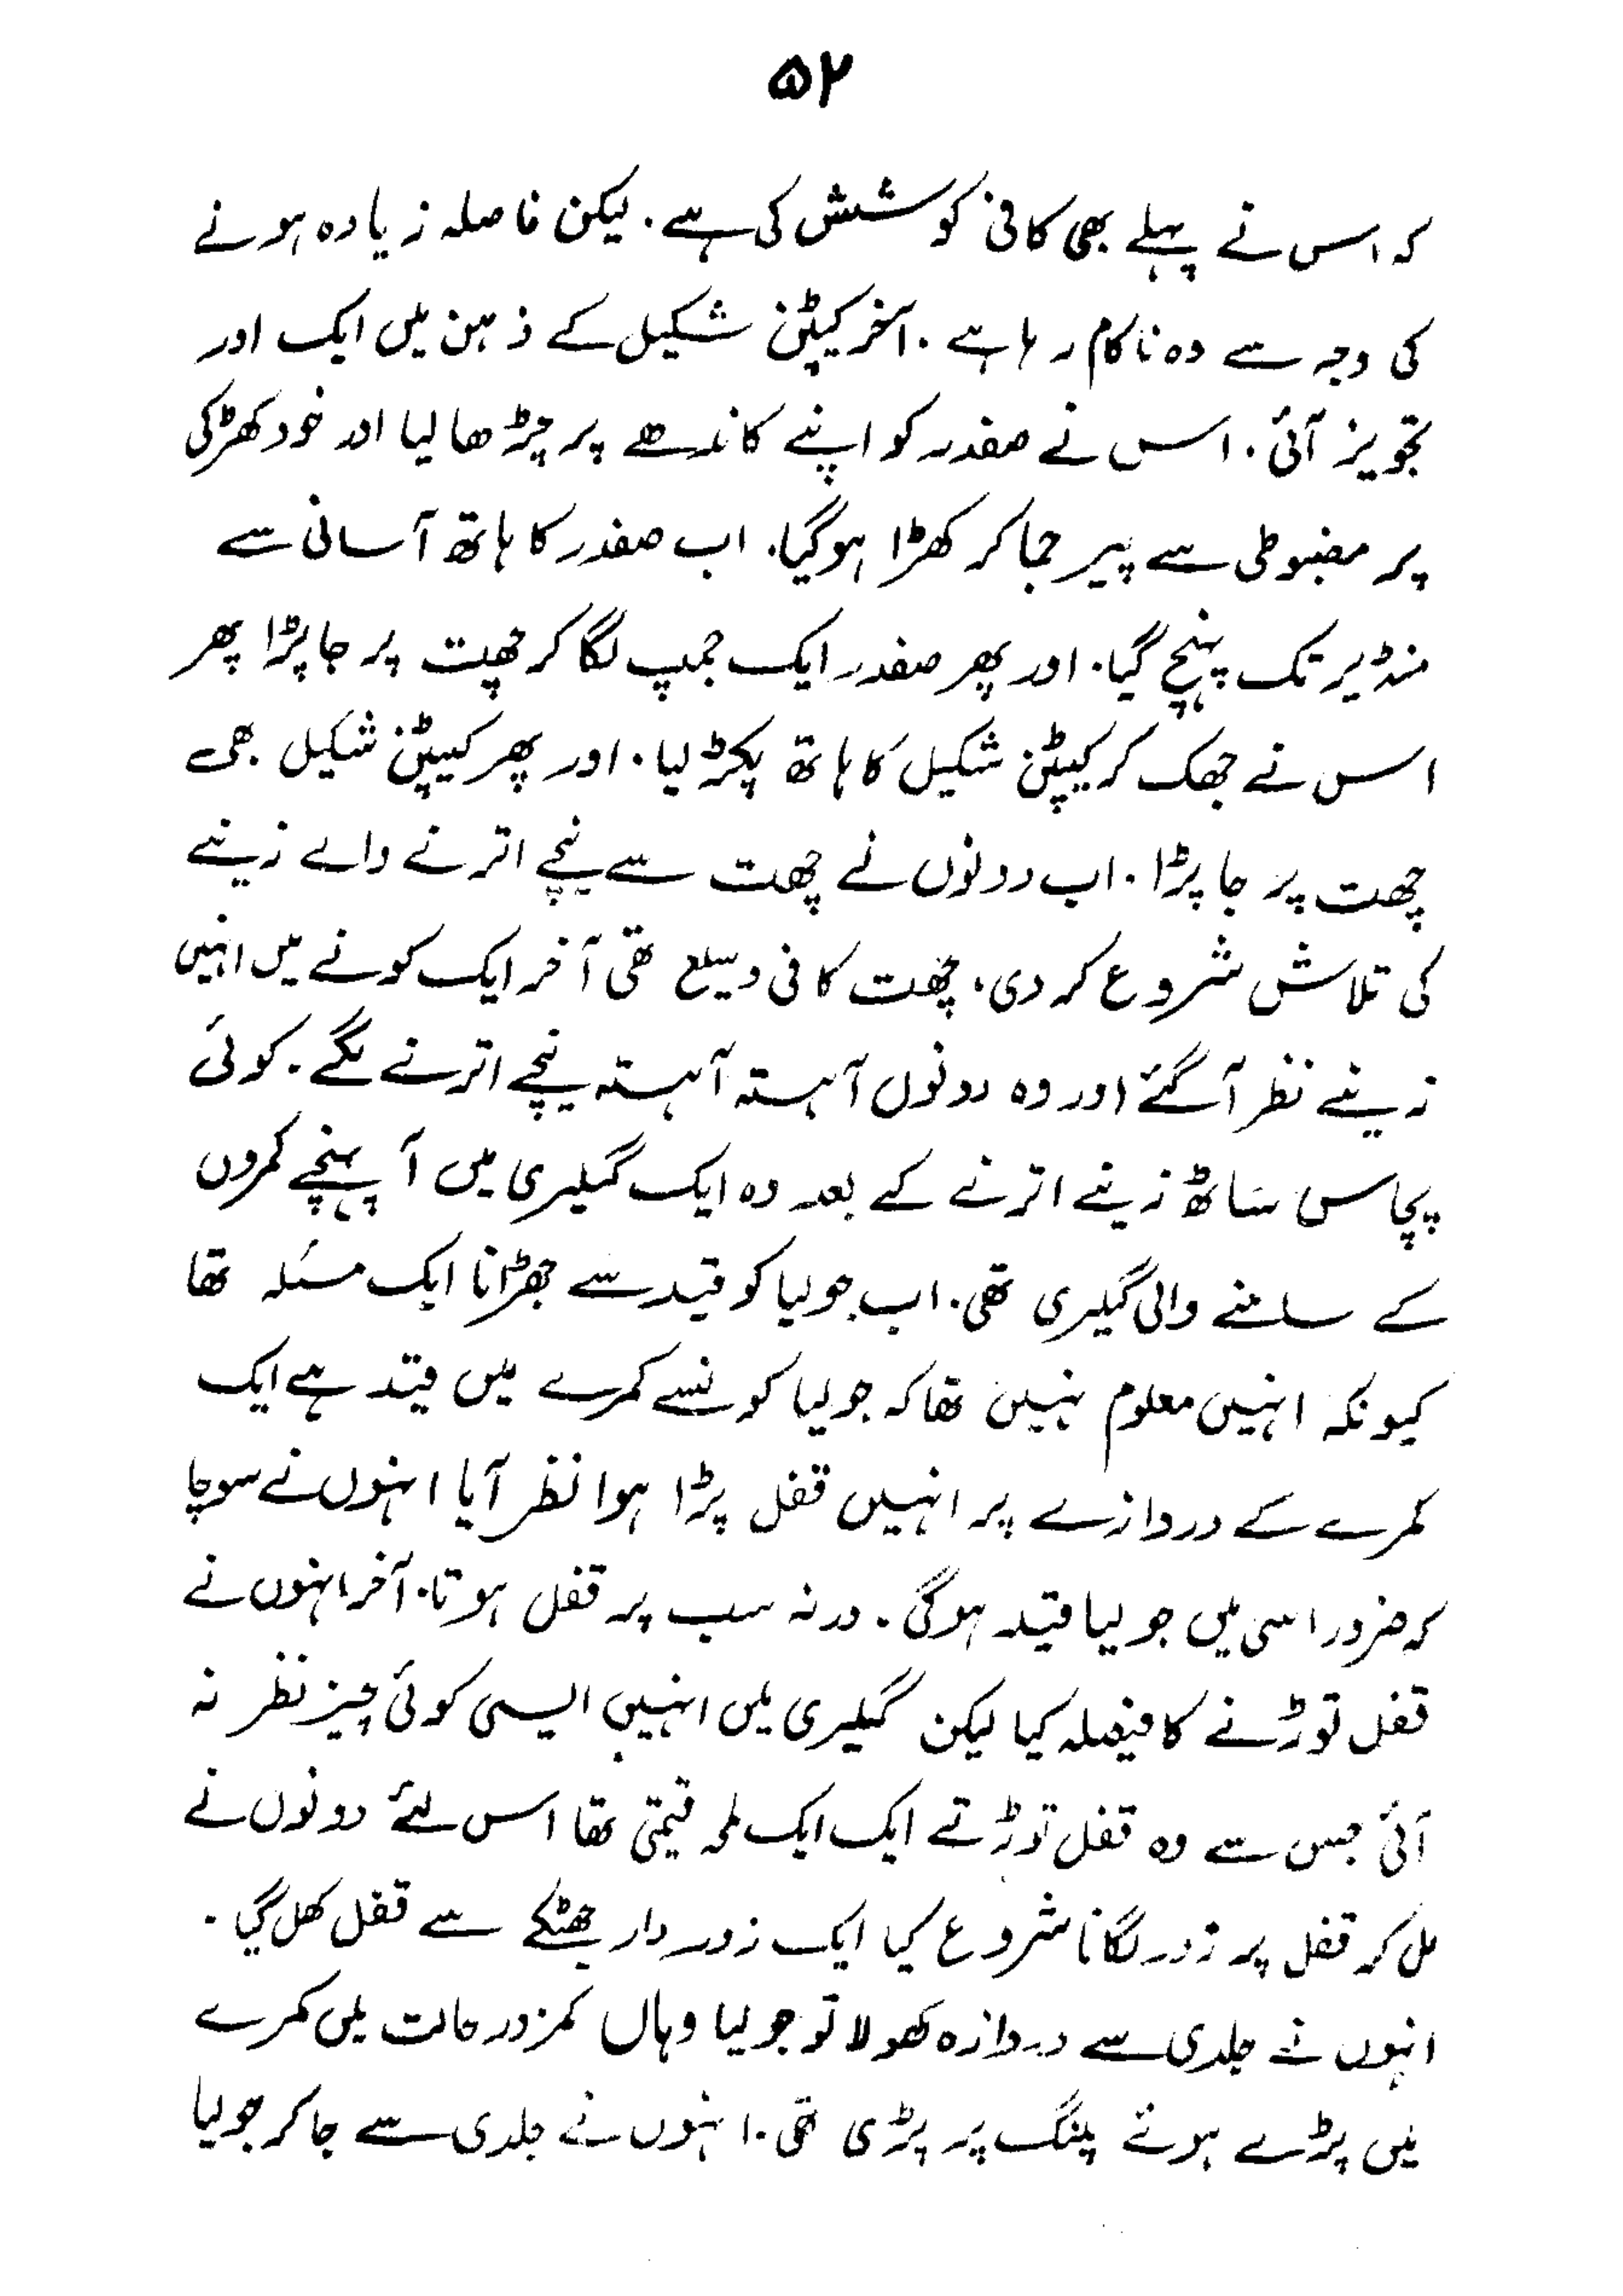 ۵۲
کہ اس نے پہلے بھی کافی کوشش کی ہے۔ لیکن فاصلہ زیادہ ہونے
کی وجہ سے وہ ناکام رہا ہے۔ آخر کیپٹن شکیل کے ذہن میں ایک اور
تجویز آئی۔ اس نے صفدر کو اپنے کاندھے پر چڑھا لیا اور خود کھڑکی
پر مضبوطی سے پیر جما کر کھڑا ہوگیا۔ اب صفدر کا ہاتھ آسانی سے
منڈیر تک پہنچ گیا۔ اور پھر صفدر ایک جمپ لگا کر چھت پر جا پڑا پھر
اس نے جھک کر کیپٹن شکیل کا ہاتھ پکڑ لیا۔ اور پھر کیپٹن شکیل بھی
چھت پر جا پڑا۔ اب دونوں نے چھت سے نیچے اترنے والے زینے
کی تلاش شروع کر دی، چھت کافی وسیع تھی آخر ایک کونے میں انہیں
زینے نظر آ گئے اور وہ دونوں آہستہ آہستہ نیچے اترنے لگے۔ کوئی
پچاس ساٹھ زینے اترنے کے بعد وہ ایک گیلری میں آ پہنچے کمروں
کے سامنے والی گیلری تھی۔ اب جولیا کو قید سے چھڑانا ایک مسئلہ تھا
کیونکہ انہیں معلوم نہیں تھا کہ جولیا کونسے کمرے میں قید ہے ایک
کمرے کے دروازے پر انہیں قفل پڑا ہوا نظر آیا انہوں نے سوچا
کہ ضرور اسی میں جولیا قید ہوگی۔ ورنہ سب پر قفل ہوتا۔ آخر انہوں نے
قفل توڑنے کا فیصلہ کیا لیکن گیلری میں انہیں ایسی کوئی چیز نظر نہ
آئی جس سے وہ قفل توڑتے ایک ایک لمحہ قیمتی تھا اس لئے دونوں نے
مل کر قفل پر زور لگانا شروع کیا ایک زور دار جھٹکے سے قفل کھل گیا۔
انہوں نے جلدی سے دروازہ کھولا تو جولیا وہاں کمزور حالت میں کمرے
میں پڑے ہوئے پلنگ پر پڑی تھی۔ انہوں نے جلدی سے جا کر جولیا